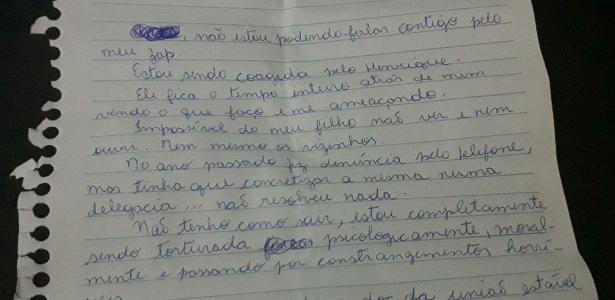 , não estou podendo falar contigo pelo
meu zap.
Estou sendo coagida pelo Henrique.
Ele fica o tempo inteiro atrás de mim
vendo o que faço e me ameaçando.
Impossível do meu filho não ver e nem
ouvir. Nem mesmo os vizinhos.
No ano passado fiz denúncia pelo telefone,
mas tinha que concretizar a mesma numa
delegacia... não resolveu nada.
Não tenho como sair, estou completamente
sendo torturada psicologicamente, moral-
mente e passando por constrangimentos horrí-
da união estável